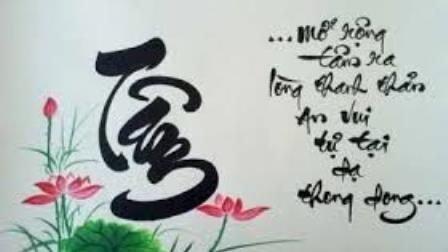 ...mở rộng
tâm ra
lòng thanh thản
An vui
tự tại
dạ
thong dong...